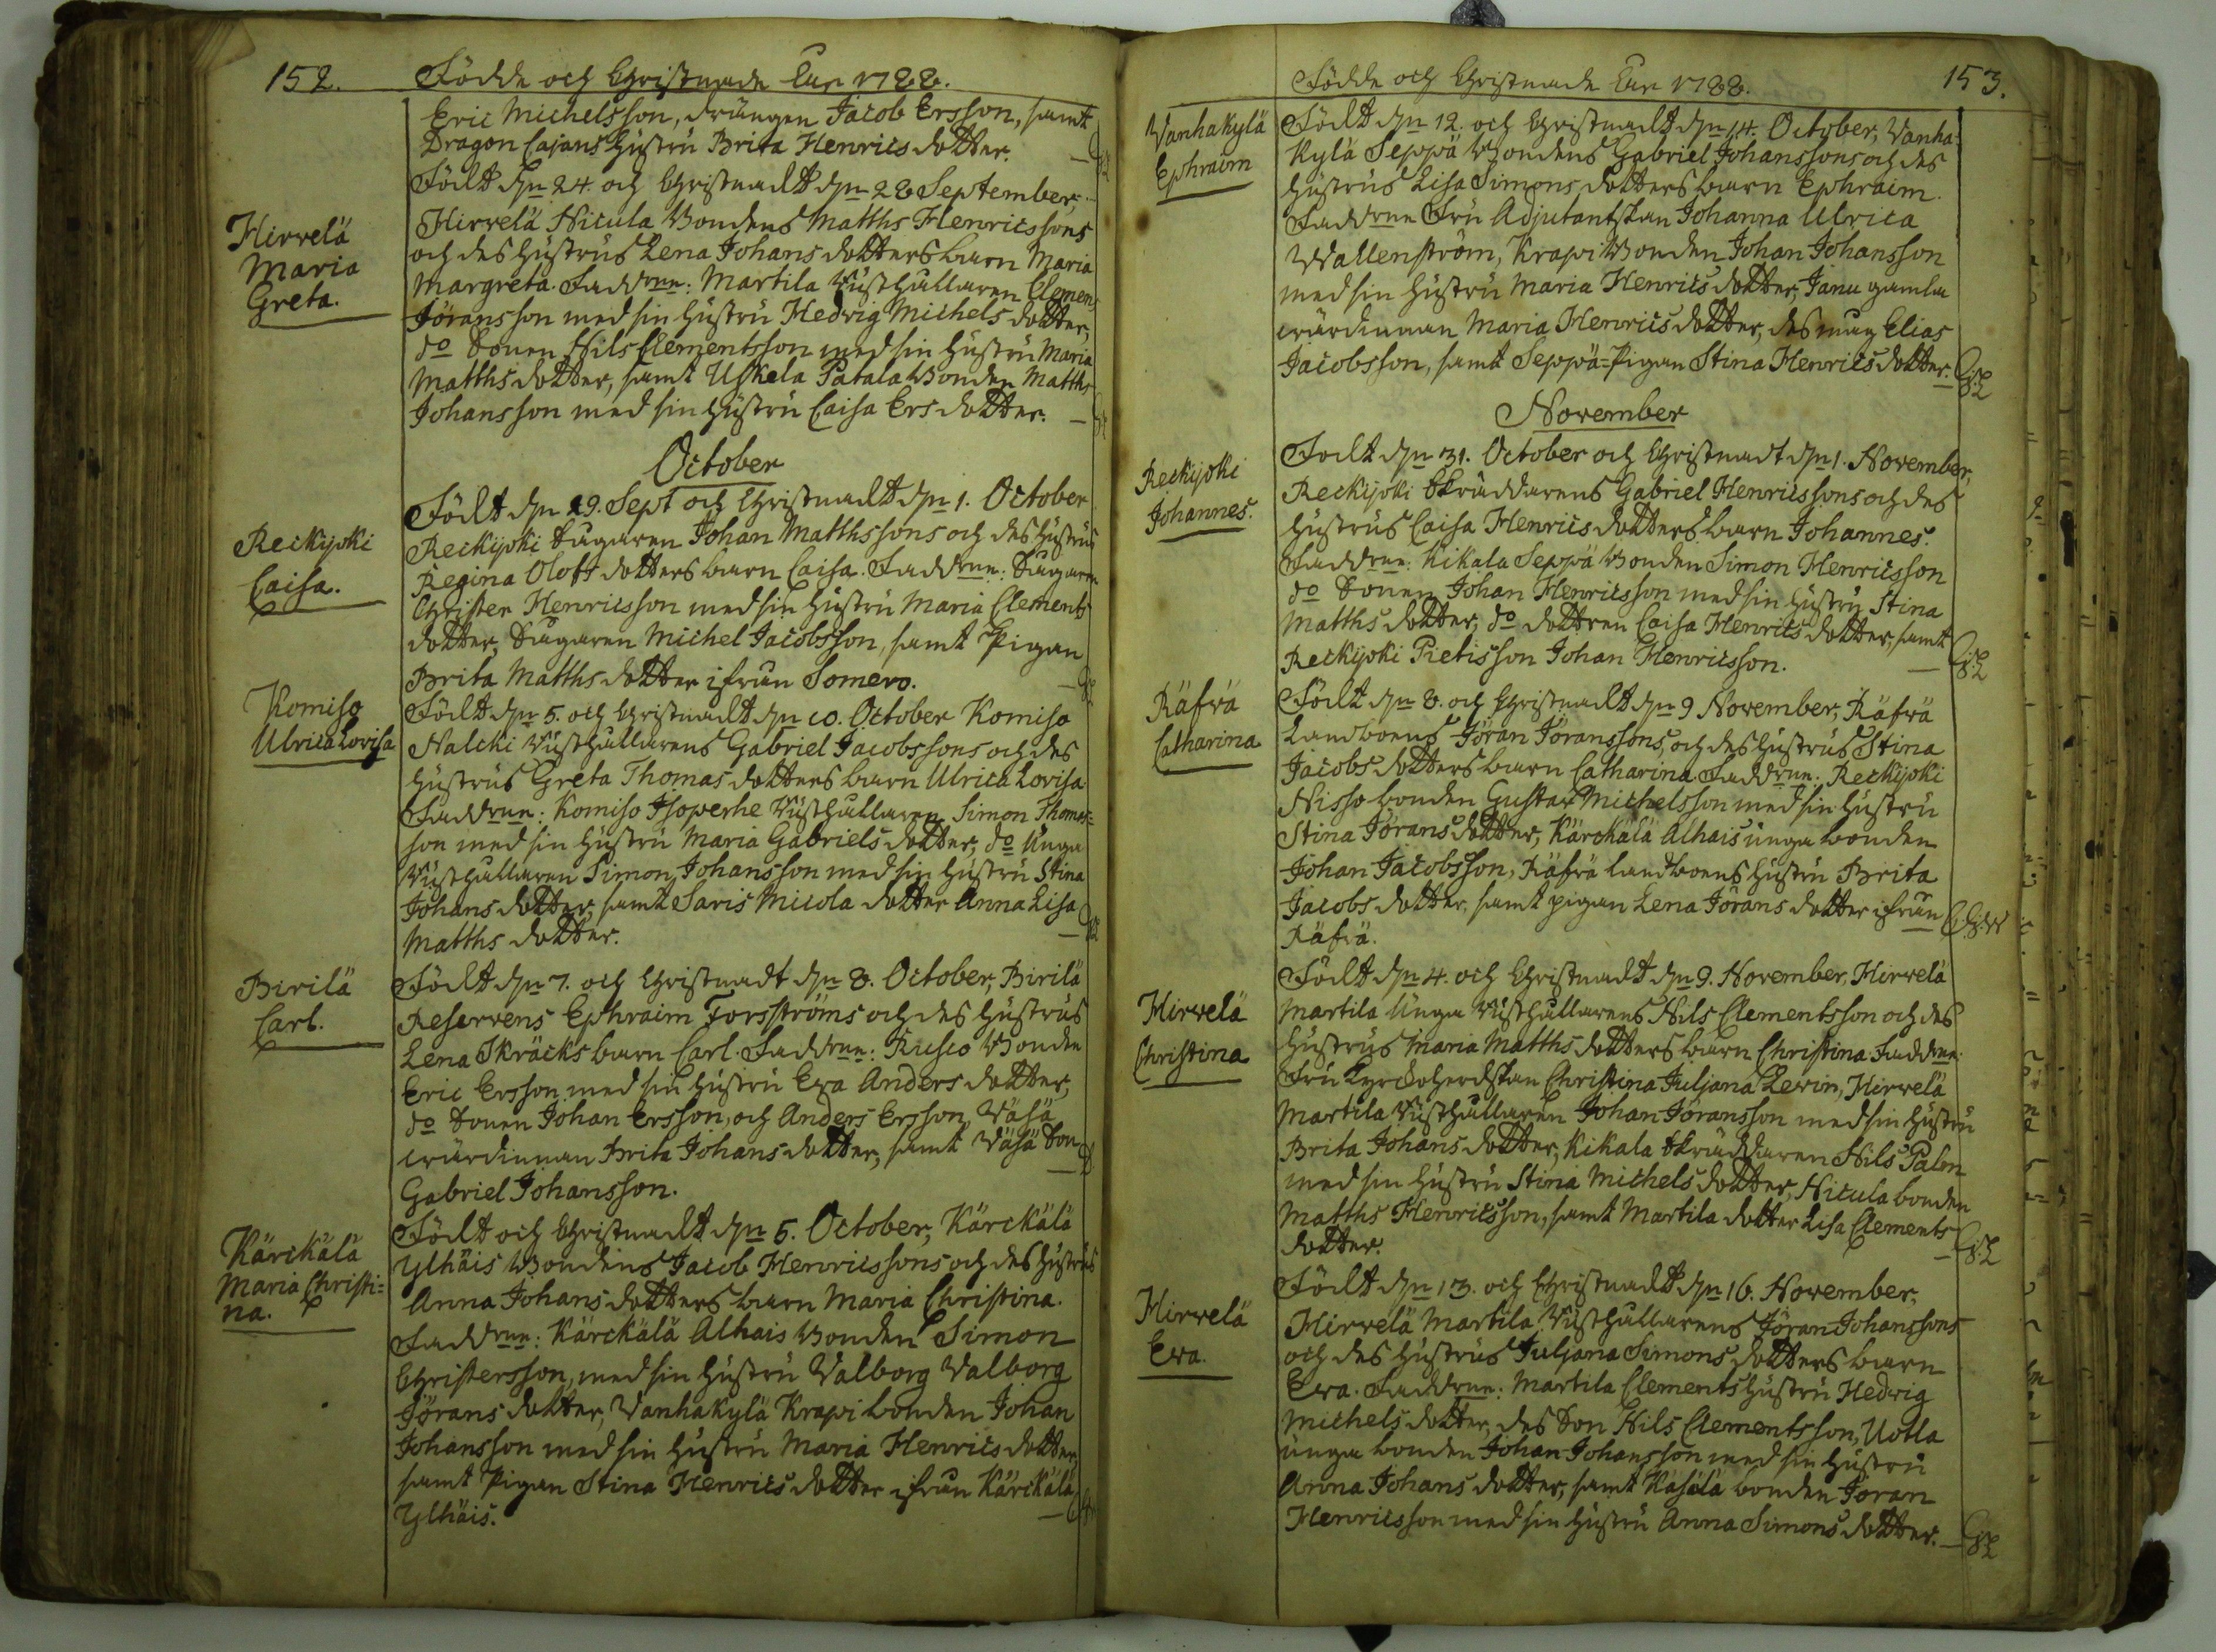 152. Födde och Christnade Åhr 1788.
Eric Michelsson, drängen Jacob Ersson, samt
Dragon Cajans hustru Brita Henricsdotter.
Hirvelä
Maria
Greta.
Födt d:n 24. och Christnadt d:n 28 September,
Hirvelä Nicula Bondens Matths Henricssons
och des hustrus Lena Johansdotters barn Maria
Margreta. Faddrne: Martila Rusthållaren Clemens
Jöransson med sin hustru Hedvig Michelsdotter,
do Sonen Nils Clementsson med sin hustru Maria
Matthsdotter, samt Uskela Patala Bonden Matths
Johansson med sin hustru Caisa Ersdotter.
October
Reckijoki
Caisa.
Födt d:n 29. Sept och Christnadt d:n 1. October
Reckijoki Sågaren Johan Matthssons och des hustrus
Regina Olofsdotters barn Caisa. Faddrne: Sågaren
Christer Henricsson med sin hustru Maria Clements
dotter, Sågaren Michel Jacobsson, samt Pigan
Brita Matthsdotter ifrån Somero.
Komiso
Ulrica Lovisa
Födt d:n 5. och Christnadt d:n 10. October Komiso
Nalcki Rusthållarens Gabriel Jacobssons och des
hustrus Greta Thomasdotters barn Ulrica Lovisa
Faddrne: Komiso Isoperhe Rusthållaren Simon Thomas=
son med sin hustru Maria Gabrielsdotter, do Unga
Rusthållaren Simon Johansson med sin hustru Stina
Johansdotter, samt Saris Micola dotter Anna Lisa
Matthsdotter.
Pirilä
Carl.
Födt d:n 7. och Christnadt d:n 8. October, Pirilä
Reservens Ephraim Forsströms och des hustrus
Lena Skräcks barn Carl. Faddrne: Rusco Bonden
Eric Ersson med sin hustru Eva Andersdotter,
do Sonen Johan Ersson, och Anders Ersson, Väsä
värdinnan Brita Johansdotter, samt Väsä Son
Gabriel Johansson.
Kärckälä
Maria Christi=
na.
Födt och Christnadt d:n 5. October, Kärckälä
Ylhäis Bondens Jacob Henricssons och des hustrus
Anna Johansdotters barn Maria Christina.
Faddrne: Kärckälä Alhais Bonden Simon
Christersson, med sin hustru Valborg Valborg
Jöransdotter, Vanhakylä Krapi bonden Johan
Johansson med sin hustru Maria Henricsdotter,
samt Pigan Stina Henricsdotter ifrån Kärckälä
Ylhäis.
Födde och Christnade Åhr 1788. 153.
Vanhakylä
Ephraim
Födt d:n 12. och Christnadt d:n 14. October, Vanha
kylä Seppä Bondens Gabriel Johanssons och des
hustrus Lisa Simonsdotters barn Ephraim.
Faddrne Fru Adjutantskan Johanna Ulrica
Wallenström, Krapi Bonden Johan Johansson
med sin hustru Maria Henricsdotter, Janu gamla
värdinnan Maria Henricsdotter, des måg Elias
Jacobsson, samt Seppä=Pigan Stina Henricsdotter.
November
Reckijoki
Johannes.
Födt d:n 31. October och Christnadt d:n 1. November,
Reckijoki Skräddarens Gabriel Henricssons och des
hustrus Caisa Henricsdotters barn Johannes.
Faddrne: Kikala Seppä Bonden Simon Henricsson
do Sonen Johan Henricsson med sin hustru Stina
Matthsdotter, do dottren Caisa Henricsdotter, samt
Reckijoki Pietisson Johan Henricsson.
Räfvä
Catharina
Födt d:n 8. och Christnadt d:n 9 November, Räfvä
Landboens Jöran Jöranssons, och des hustrus Stina
Jacobsdotters barn Catharina. Faddrne: Reckijoki
Nisso bonden Gustav Michelsson med sin hustru
Stina Jöransdotter, Kärckälä Alhais unga bonden
Johan Jacobsson, Räfvä landboens hustru Brita
Jacobsdotter, samt pigan Lena Jöransdotter ifrån
Räfvä.
Hirvelä
Christina
Födt d:n 4. och Christnadt d:n 9. November, Hirvelä
Martila Unga Rusthållarens Nils Clementsson och des
hustrus Maria Matthsdotters barn Christina Faddrne:
Fru Kyrckoherdskan Christina Juljana Levin, Hirvelä
Martila Rusthållaren Johan Jöransson med sin hustru
Brita Johansdotter, Kikala Skräddaren Nils Palen
med sin hustru Stina Michelsdotter, Nicula bonden
Matths Henricsson, samt Martila dotter Lisa Clements
dotter.
Hirvelä
Eva.
Födt d:n 13. och Christnadt d:n 16. November,
Hirvelä Martila Rusthållarens Jöran Johanssons
och des hustrus Juljana Simonsdotters barn
Eva. Faddrne: Martila Clements hustru Hedvig
Michelsdotter, des Son Nils Clementsson, Uotla
unga bonden Johan Johansson med sin hustru
Anna Johansdotter, samt Kasala bonden Jöran
Henricsson med sin hustru Anna Simonsdotter.